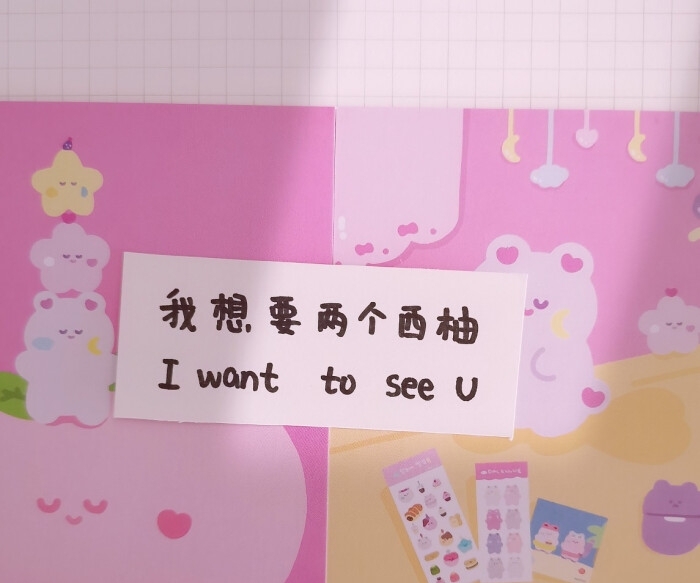 我想要两个西柚
I want to see U